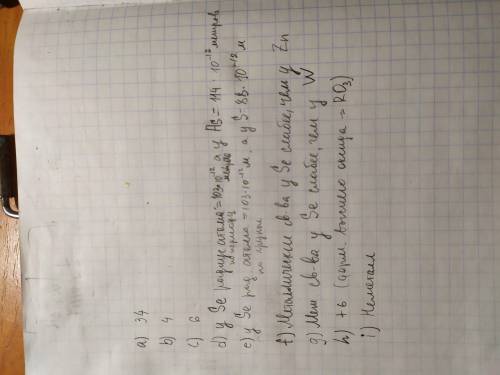 a) 34
b) 4
c) 6
d) у Se радиус атома = 103·10⁻¹² а у As = 114 · 10⁻¹² метров
по периоду метров
e) у Se рад. атома = 103·10⁻¹² м, а у S = 88·10⁻¹² м
по группе
f) Металлические св-ва у Se слабее, чем у Zn
g) Мет св-ва у Se слабее, чем у W
h) +6 (форм. высшего оксида → RO₃)
i) Неметалл